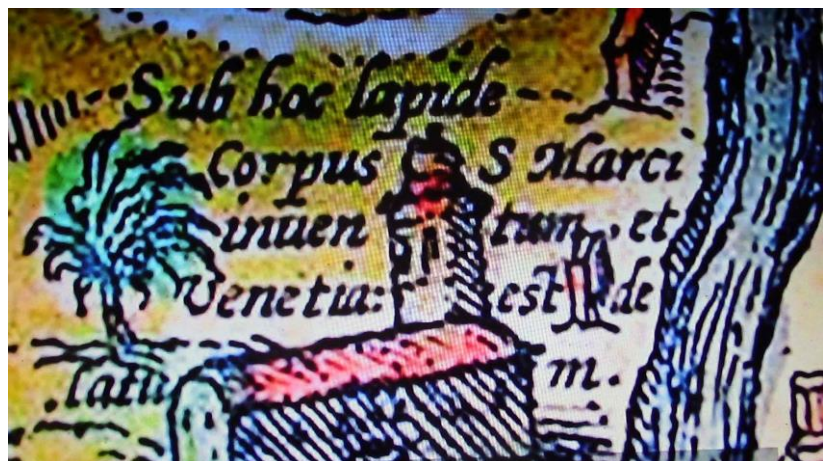 Sub hoc lapide
Corpus S Marci
inuen tum et
Venetia: est de
latu m.